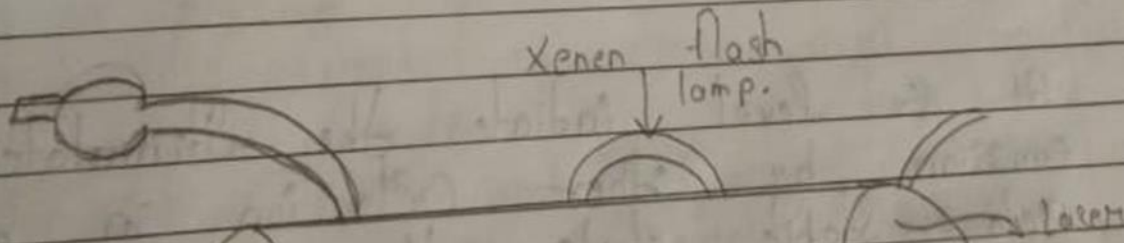 Xenen flash
lamp.
Laser